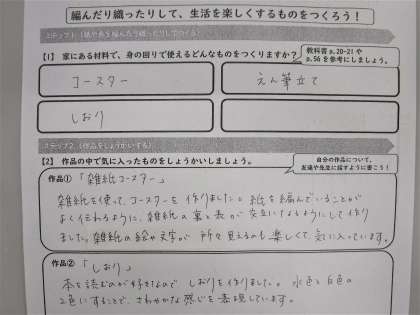 編んだり織ったりして、生活を楽しくするものをつくろう！
ステップ1（紙や布を編んだり織ったりしてつくる）
【1】 家にある材料で、身の回りで使えるどんなものをつくりますか？
教科書 p.20-21 や
p.56 を参考にしましょう。
コースター
えん筆立て
しおり
ステップ2（作品をしょうかいする）
【2】 作品の中で気に入ったものをしょうかいしましょう。
自分の作品について、
友達や先生に話すように書こう！
作品① 「雑紙コースター」
雑紙を使って、コースターを作りました。紙を編んでいることが
よく伝わるように、雑紙の裏と表が交互になるようにして作り
ました。雑紙の絵や文字が所々見えるのも楽しくて気に入っています。
作品② 「しおり」
本を読むのが好きなので しおりを作りました。水色と白色の
2色にすることで、さわやかな感じを表現しています。